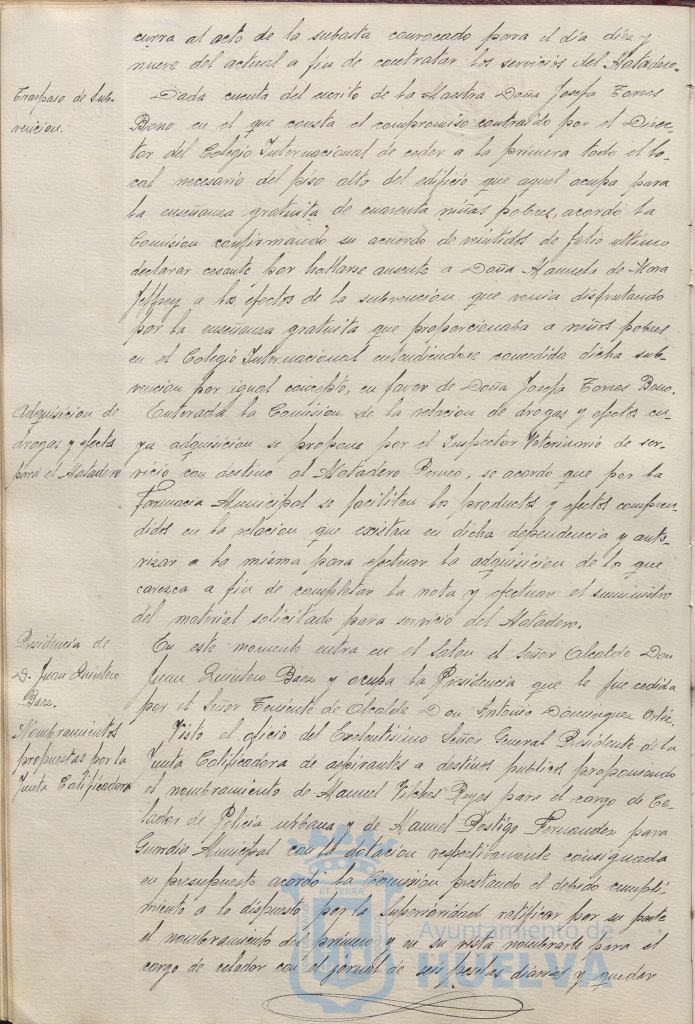 curra al acto de la subasta convocado para el dia diez y
nueve del actual a fin de contratar los servicios del Matadero.
Traspaso de Sub-
vencion.
Dada cuenta del escrito de la Maestra Doña Josefa Torres
Bono en el que consta el compromiso contraido por el Direc-
tor del Colegio Internacional de ceder a la primera todo el lo-
cal necesario del piso alto del edificio que aquel ocupa para
la enseñanza gratuita de cuarenta niñas pobres, acordó la
Comision confirmando su acuerdo de veintidos de Julio ultimo
declarar cesante por hallarse ausente a Doña Manuela de Mora
Jeffrey a los efectos de la subvencion que venia disfrutando
por la enseñanza gratuita que proporcionaba a niños pobres
en el Colegio Internacional entendiendose concedida dicha sub-
vencion por igual concepto, en favor de Doña Josefa Torres Bono.
Adquisicion de
drogas y efectos
para el Matadero
Enterada la Comision de la relacion de drogas y efectos cu-
ya adquisicion se propone por el Inspector Veterinario de ser-
vicio con destino al Matadero Porcino, se acordo que por la
Farmacia Municipal se faciliten los productos y efectos compren-
didos en la relacion que existan en dicha dependencia y auto-
rizar a la misma para efectuar la adquisicion de los que
carezca a fin de completar la nota y efectuar el suministro
del material solicitado para servicio del Matadero.
Presidencia de
D. Juan Quintero
Baez.
En este momento entra en el Salon el Señor Alcalde Don
Juan Quintero Baez y ocupa la Presidencia que le fue cedida
por el Señor Teniente de Alcalde Don Antonio Dominguez Ortiz.
Nombramientos
propuestas por la
Junta Calificadora
Visto el oficio del Excelentisimo Señor General Presidente de la
Junta Calificadora de aspirantes a destinos publicos proponiendo
el nombramiento de Manuel Vilches Reyes para el cargo de Ce-
lador de Policia urbana y de Manuel Postigo Fernandez para
Guardia Municipal con la dotacion respectivamente consignada
en presupuesto acordó la Comision prestando el debido cumpli-
miento a lo dispuesto por la Superioridad ratificar por su parte
el nombramiento del primero y en su vista nombrarle para el
cargo de celador con el jornal de seis pesetas diarias y quedar
Ayuntamiento de
HUELVA